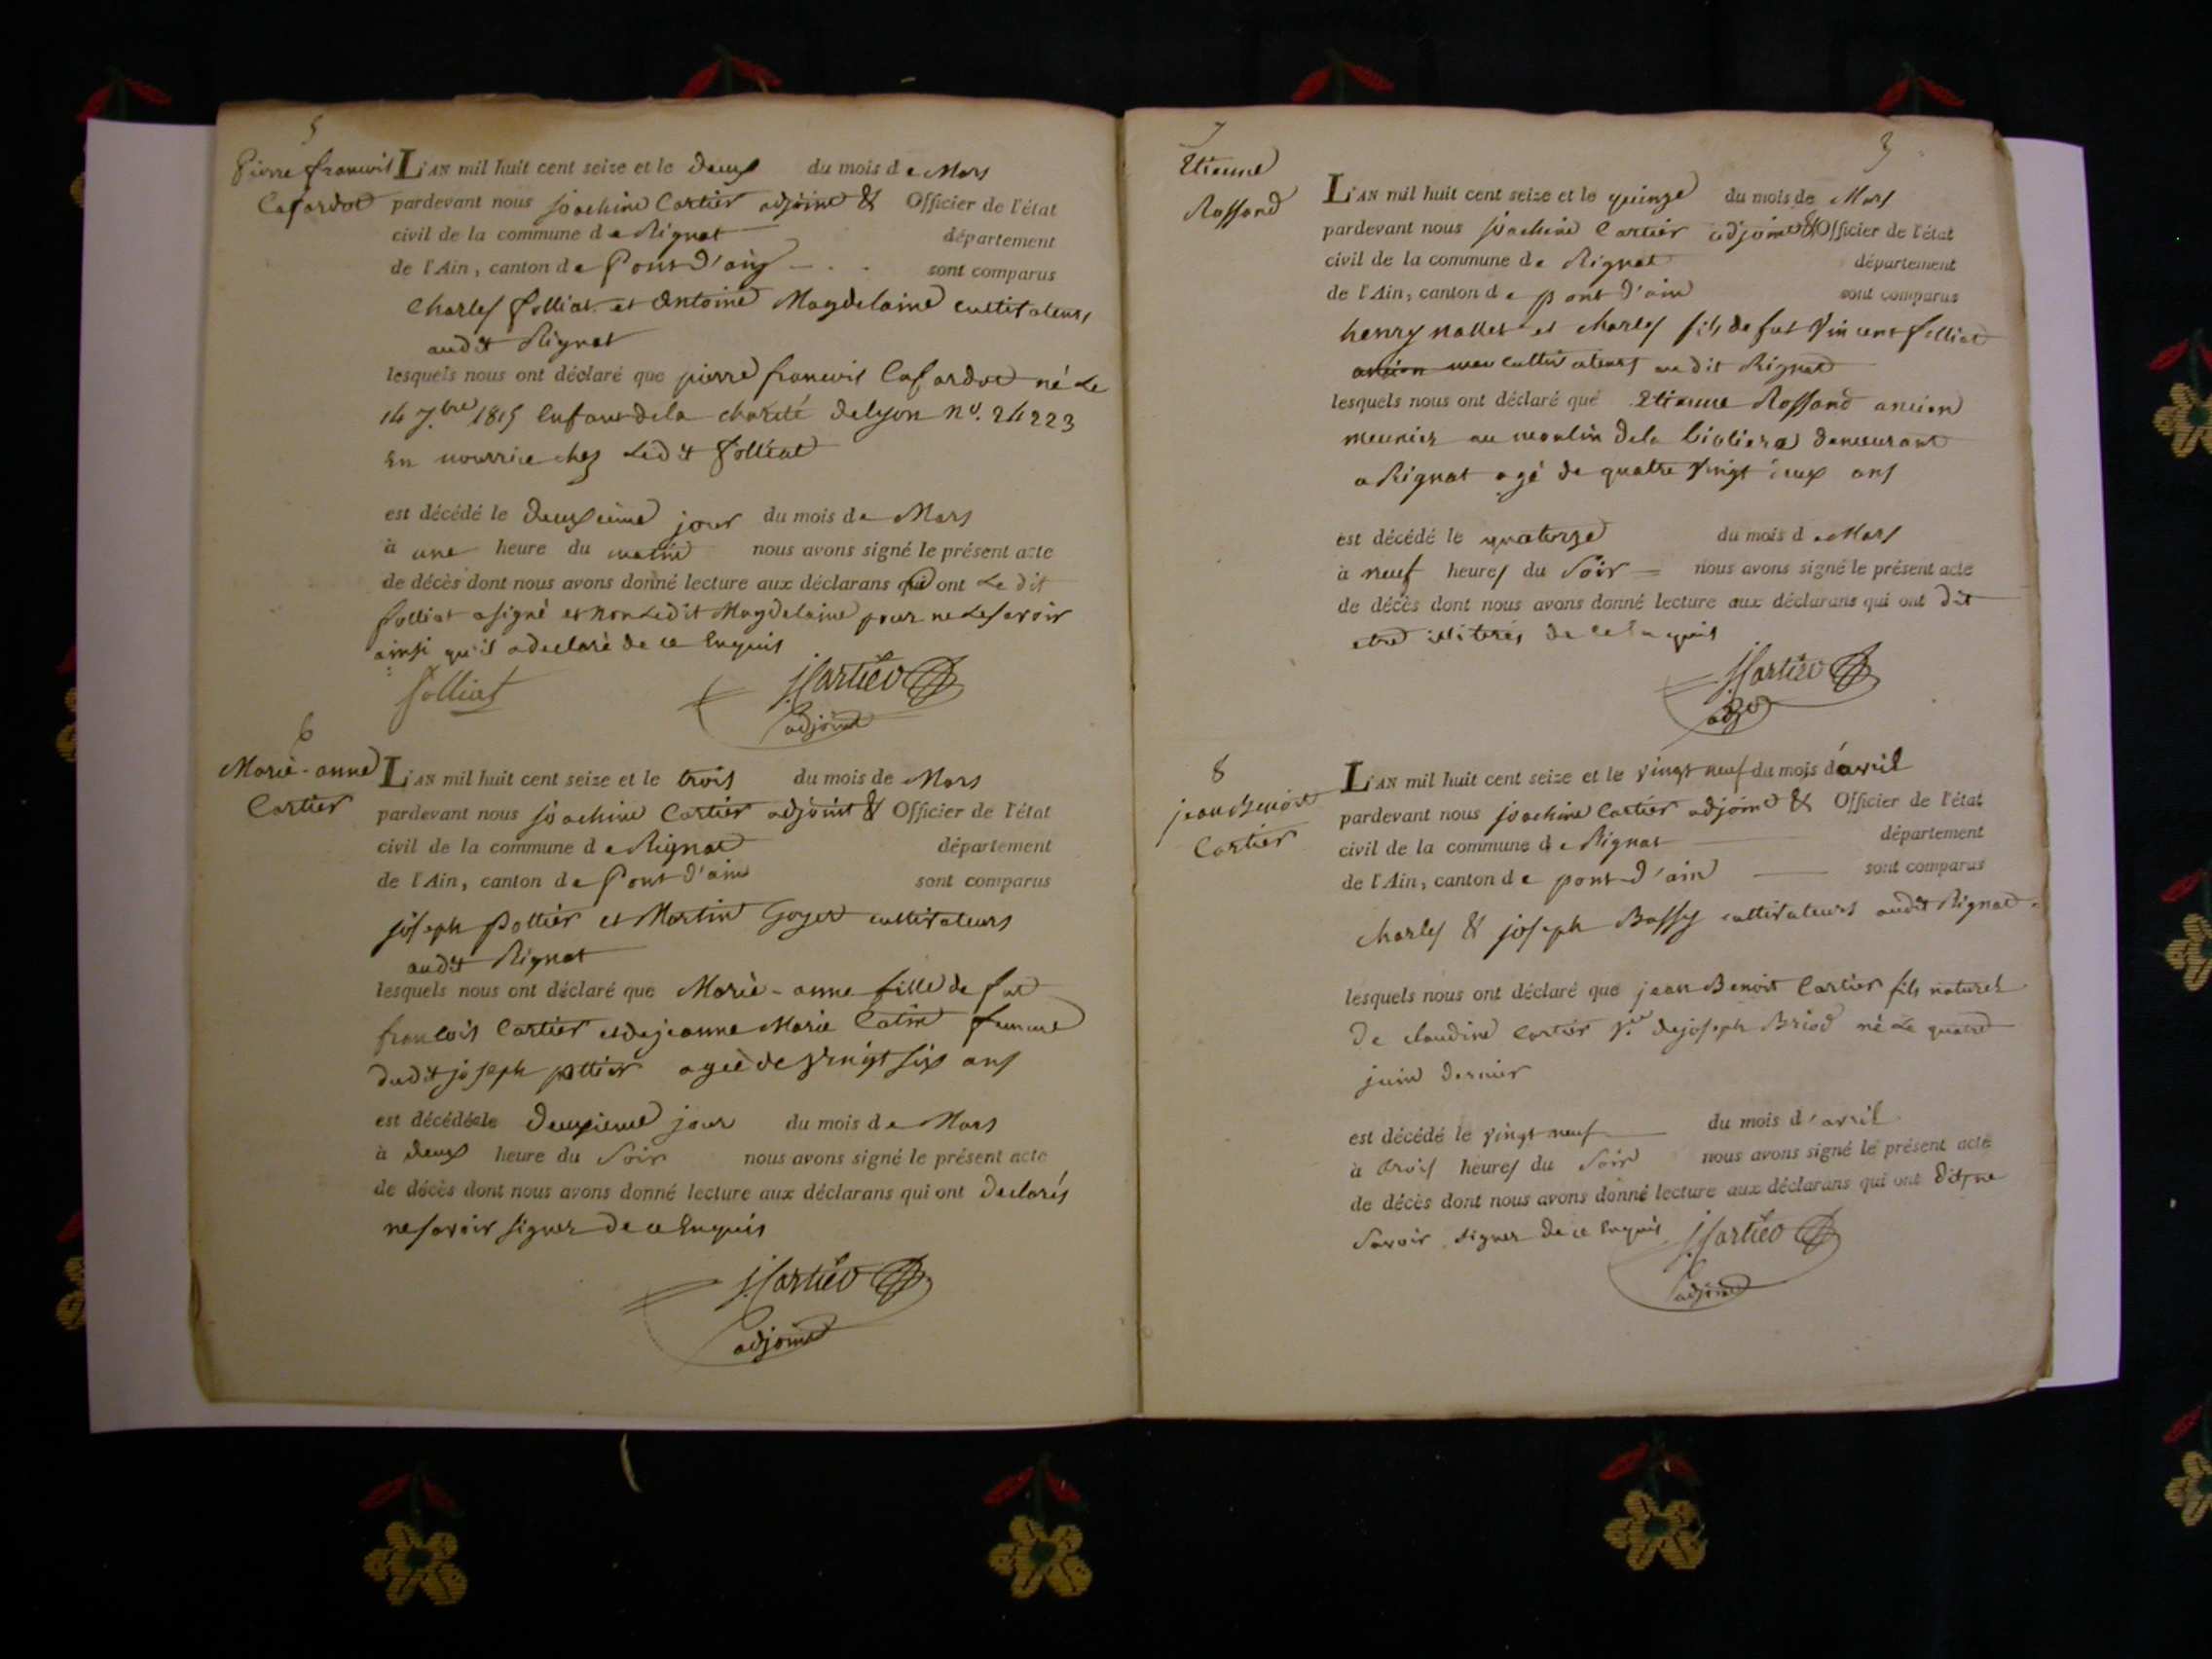 5
Pierre francois
Cafardot
L'AN mil huit cent seize et le deux du mois de Mars
pardevant nous joachim Cartier adjoint & Officier de l'état
civil de la commune de Rignat département
de l'Ain, canton de Pont d'ain sont comparus
Charles folliat et Antoine Magdelaine cultivateurs
audit Rignat
lesquels nous ont déclaré que pierre francois Cafardot né Le
14 7.bre 1815 Enfant de la charité de lyon n°. 24223
En nourrice chez Ledit folliat
est décédé le deuxieme jour du mois de Mars
à une heure du matin nous avons signé le présent acte
de décès dont nous avons donné lecture aux déclarans qui ont Le dit
folliat a signé et non Ledit Magdelaine pour ne Le savoir
ainsi qu'il a declaré de ce Enquis
folliat
J Cartier
adjoint
6
Marie-anne
Cartier
L'AN mil huit cent seize et le trois du mois de Mars
pardevant nous joachim Cartier adjoint & Officier de l'état
civil de la commune de Rignat département
de l'Ain, canton de Pont d'ain sont comparus
joseph Pottier et Martin Goyet cultivateurs
audit Rignat
lesquels nous ont déclaré que Marie-anne fille de fut
francois Cartier et de jeanne Marie Catin femme
dudit joseph pottier agée de vingt six ans
est décédée le deuxieme jour du mois de Mars
à deux heure du Soir nous avons signé le présent acte
de décès dont nous avons donné lecture aux déclarans qui ont declarés
ne savoir signer de ce Enquis
J Cartier
adjoint
7
Etienne
Rossand
3
L'AN mil huit cent seize et le quinze du mois de Mars
pardevant nous joachim Cartier adjoint & Officier de l'état
civil de la commune de Rignat département
de l'Ain, canton de pont d'ain sont comparus
henry nallet et charles fils de fut Vincent folliat
cultivateurs au dit Rignat
lesquels nous ont déclaré que Etienne Rossand ancien
meunier au moulin de la demeurant
a Rignat agé de quatre vingt deux ans
est décédé le quatorze du mois de Mars
à neuf heures du Soir nous avons signé le présent acte
de décès dont nous avons donné lecture aux déclarans qui ont dit
etre illiterés de ce Enquis
J Cartier
adj
8
jean Benoit
Cartier
L'AN mil huit cent seize et le vingt neuf du mois d'avril
pardevant nous joachim Cartier adjoint & Officier de l'état
civil de la commune de Rignat département
de l'Ain, canton de pont d'ain sont comparus
charles & joseph Bassy cultivateurs audit Rignat
lesquels nous ont déclaré que jean Benoit Cartier fils naturel
de claudine Cartier V.ve de joseph Briod né Le quatre
juin dernier
est décédé le vingt neuf du mois d'avril
à trois heures du Soir nous avons signé le présent acte
de décès dont nous avons donné lecture aux déclarans qui ont dit ne
Savoir signer de ce Enquis
J Cartier
adjoint